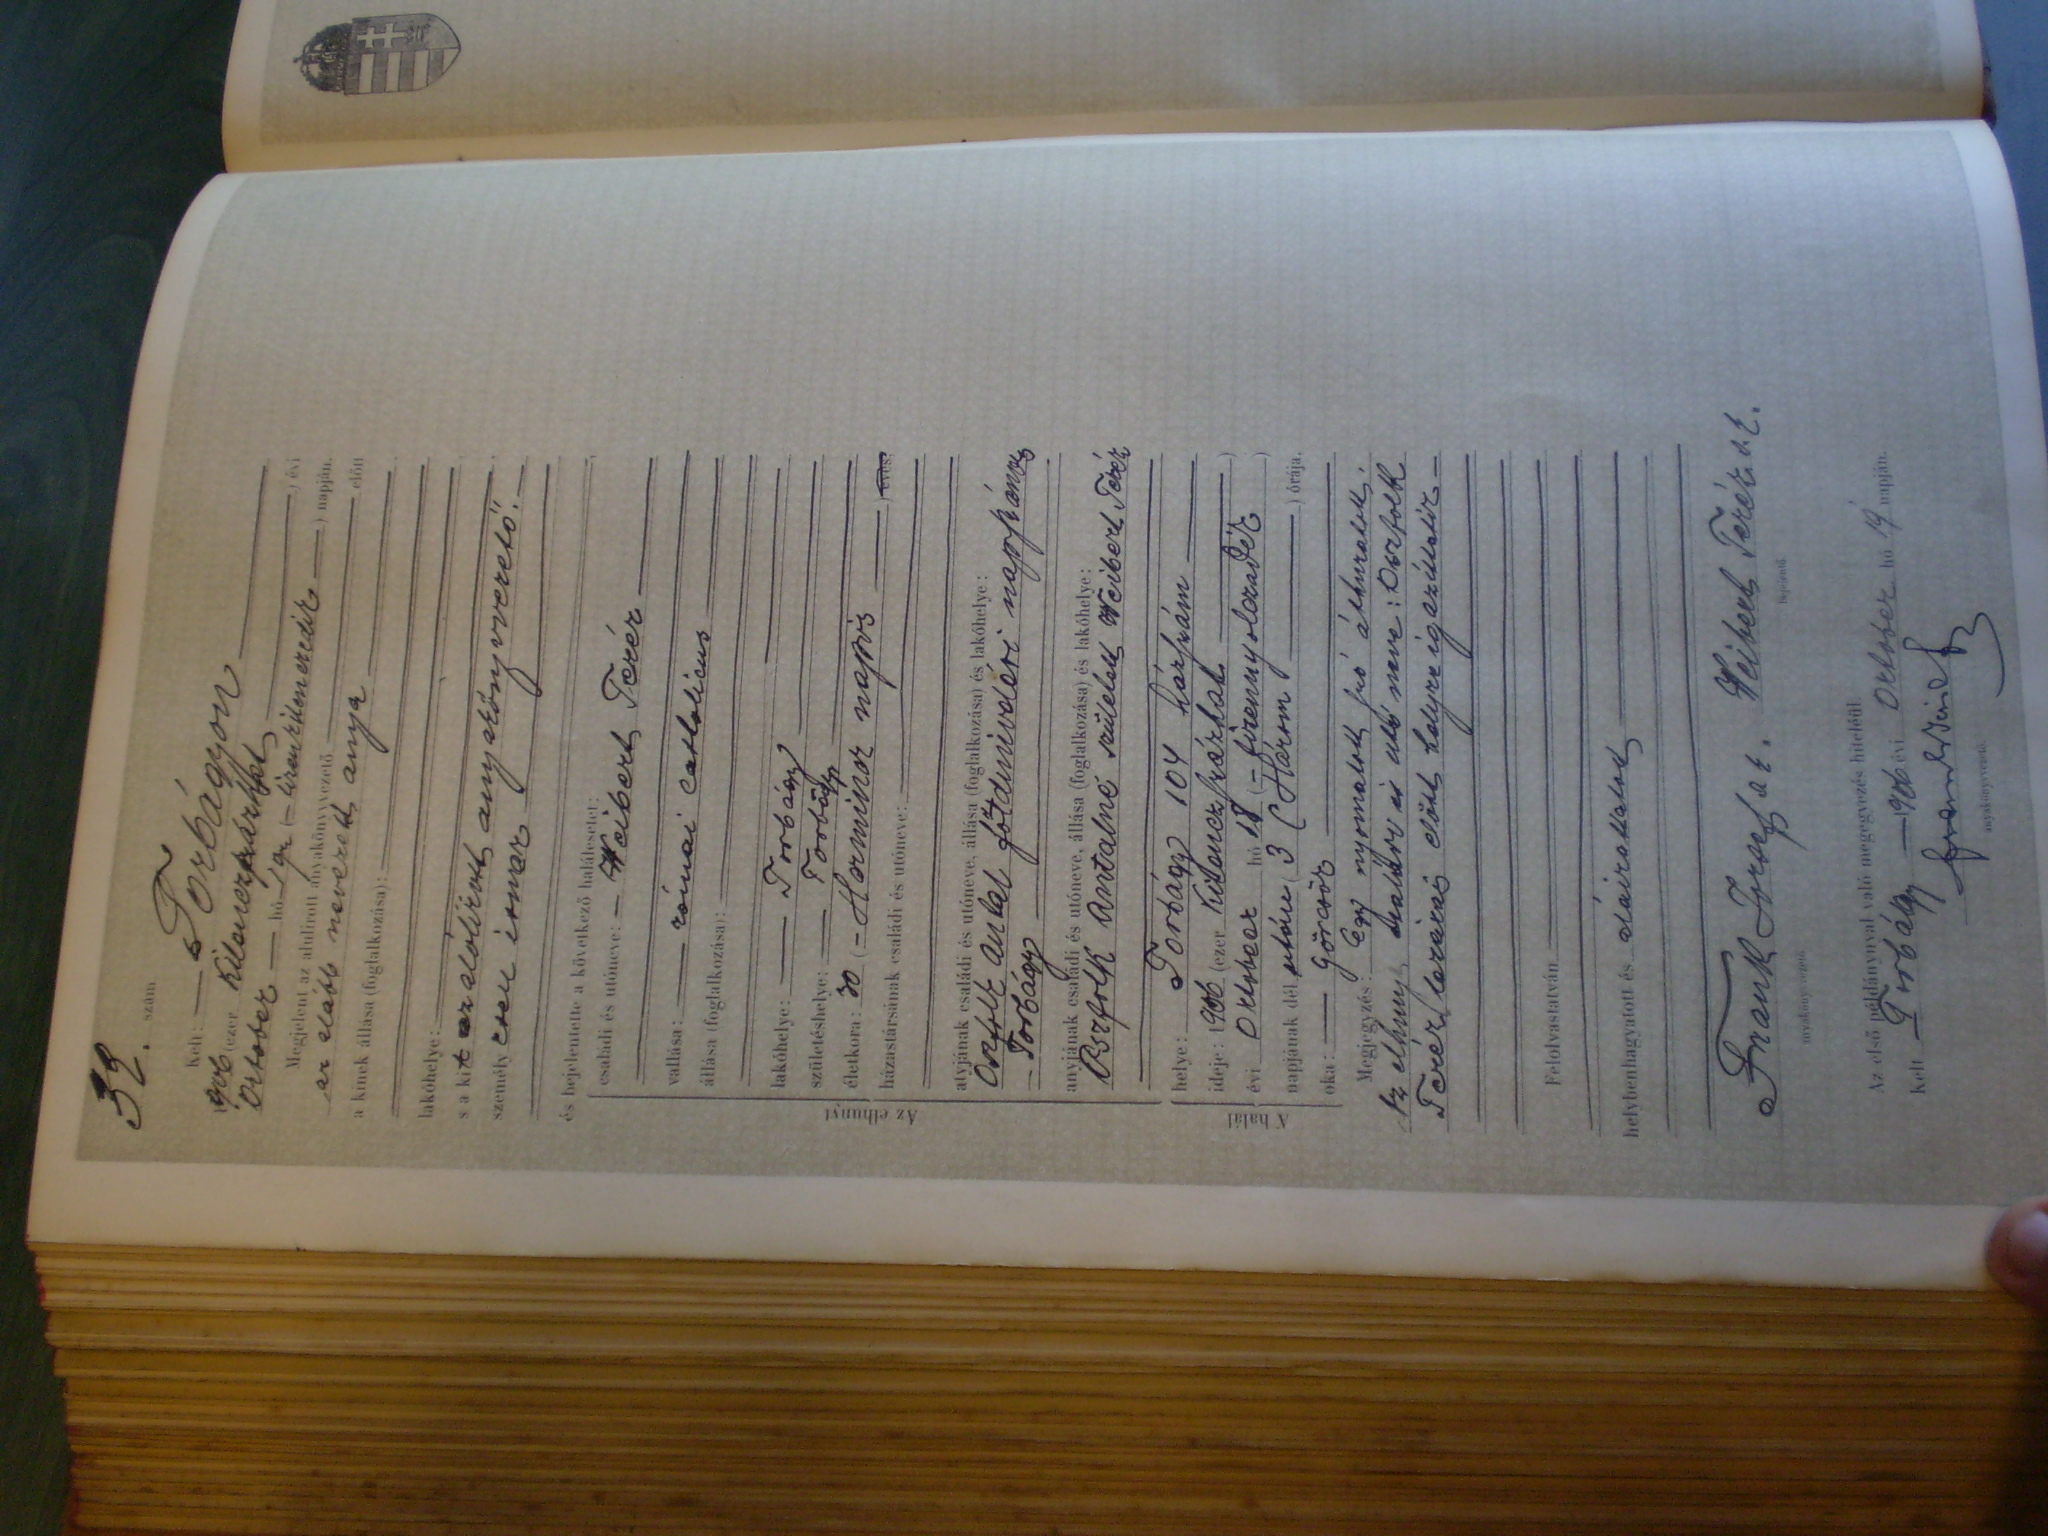 32.
szám
Kelt: Torbágyon
906 (ezer kilenczszázhat
) évi
október hó 19 (- tizenkilenczedik ) napján.
Megjelent az alulirott anyakönyvvezető előtt
az alább nevezett anya
a kinek állása (foglalkozása):
lakóhelye:
s a kit az alólirott anyakönyvvezető
személyesen ismer
és bejelentette a következő halálesetet:
Az elhunyt
családi és utóneve: Weibert Teréz
vallása: római catholicus
állása (foglalkozása):
lakóhelye: Torbágy
születéshelye: Torbágy
életkora: 30 (- Harmincz napos ) éves;
házastársának családi és utóneve:
atyjának családi és utóneve, állása (foglalkozása) és lakóhelye:
Oszfolk Antal földmivelési napszámos
- Torbágy
anyjának családi és utóneve, állása (foglalkozása) és lakóhelye:
Oszfolk Antalné született Weibert Teréz
A halál
helye: Torbágy 104 házszám
ideje: 1906 (ezer kilenczszázhat )
évi október hó 18 (- tizennyolczadik )
napjának dél utáni 3 (Három ) órája.
oka: görcsök
Megjegyzés: Egy nyomatott szó áthuzatott;
Az elhunyt családi és utó neve: Oszfolk
Teréz, lezárás előtt helyreigazittatik
Felolvastatván
helybenhagyatott és aláiratott
Frank József a.k. Weibert Teréz s.k.
anyakönyvvezető
bejelentő
Az első példánynyal való megegyezés hiteléül.
Kelt Torbágy 1906 évi október hó 19 napján.
anyakönyvvezető.